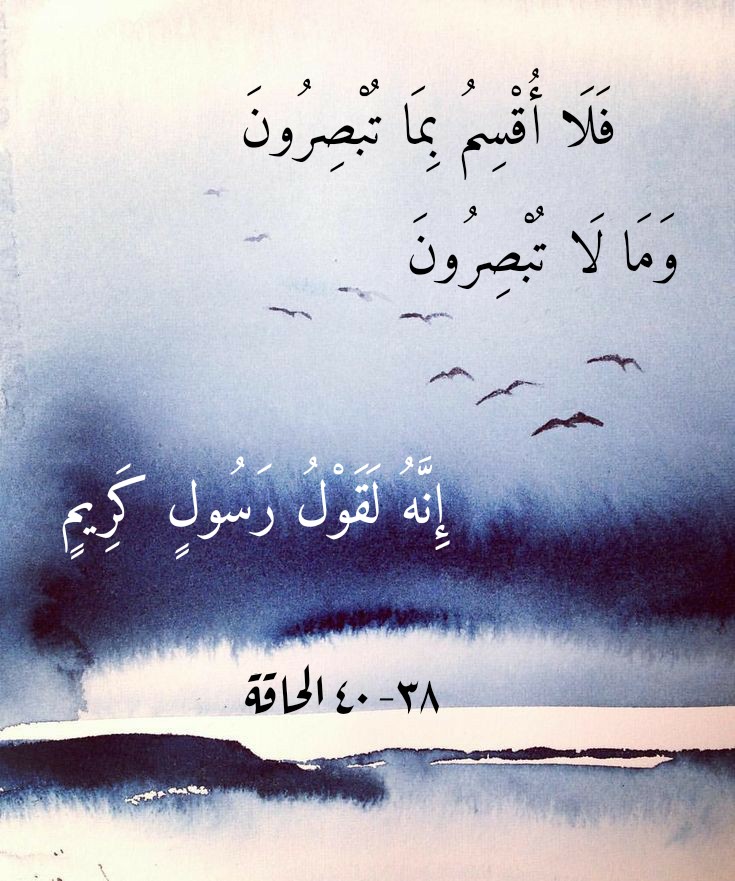 فَلَا أُقْسِمُ بِمَا تُبْصِرُونَ
وَمَا لَا تُبْصِرُونَ
إِنَّهُ لَقَوْلُ رَسُولٍ كَرِيمٍ
٣٨-٤٠ الحاقة